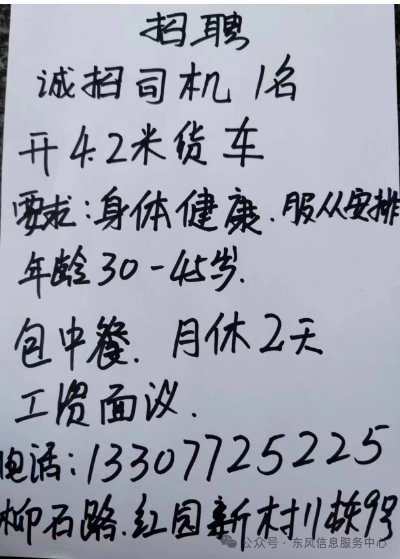 招聘
诚招司机1名
开4.2米货车
要求:身体健康.服从安排
年龄30-45岁.
包中餐.月休2天
工资面议.
电话:13307725225
柳石路.红园新村11栋9号
公众号·东风信息服务中心